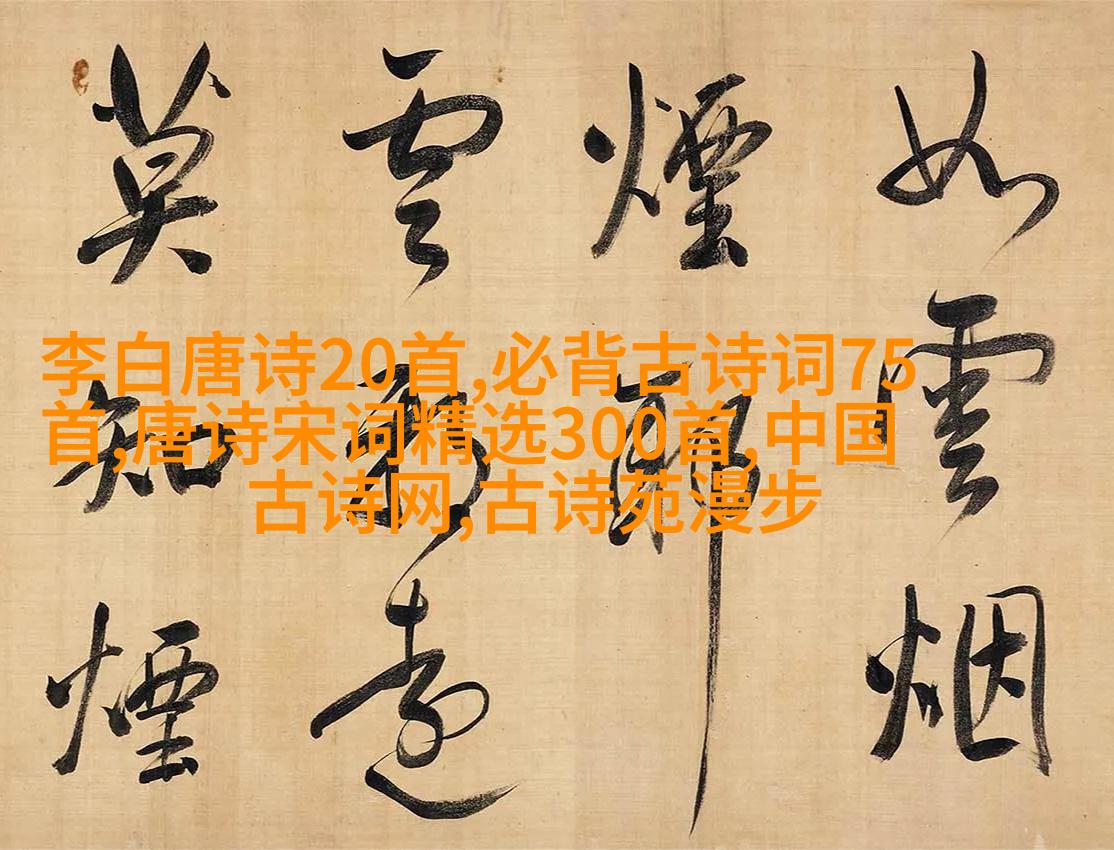 李白唐诗20首,必背古诗词75
首,唐诗宋词精选300首,中国
古诗网,古诗苑漫步
如雲烟
煙耶
雲遠
莫知煙